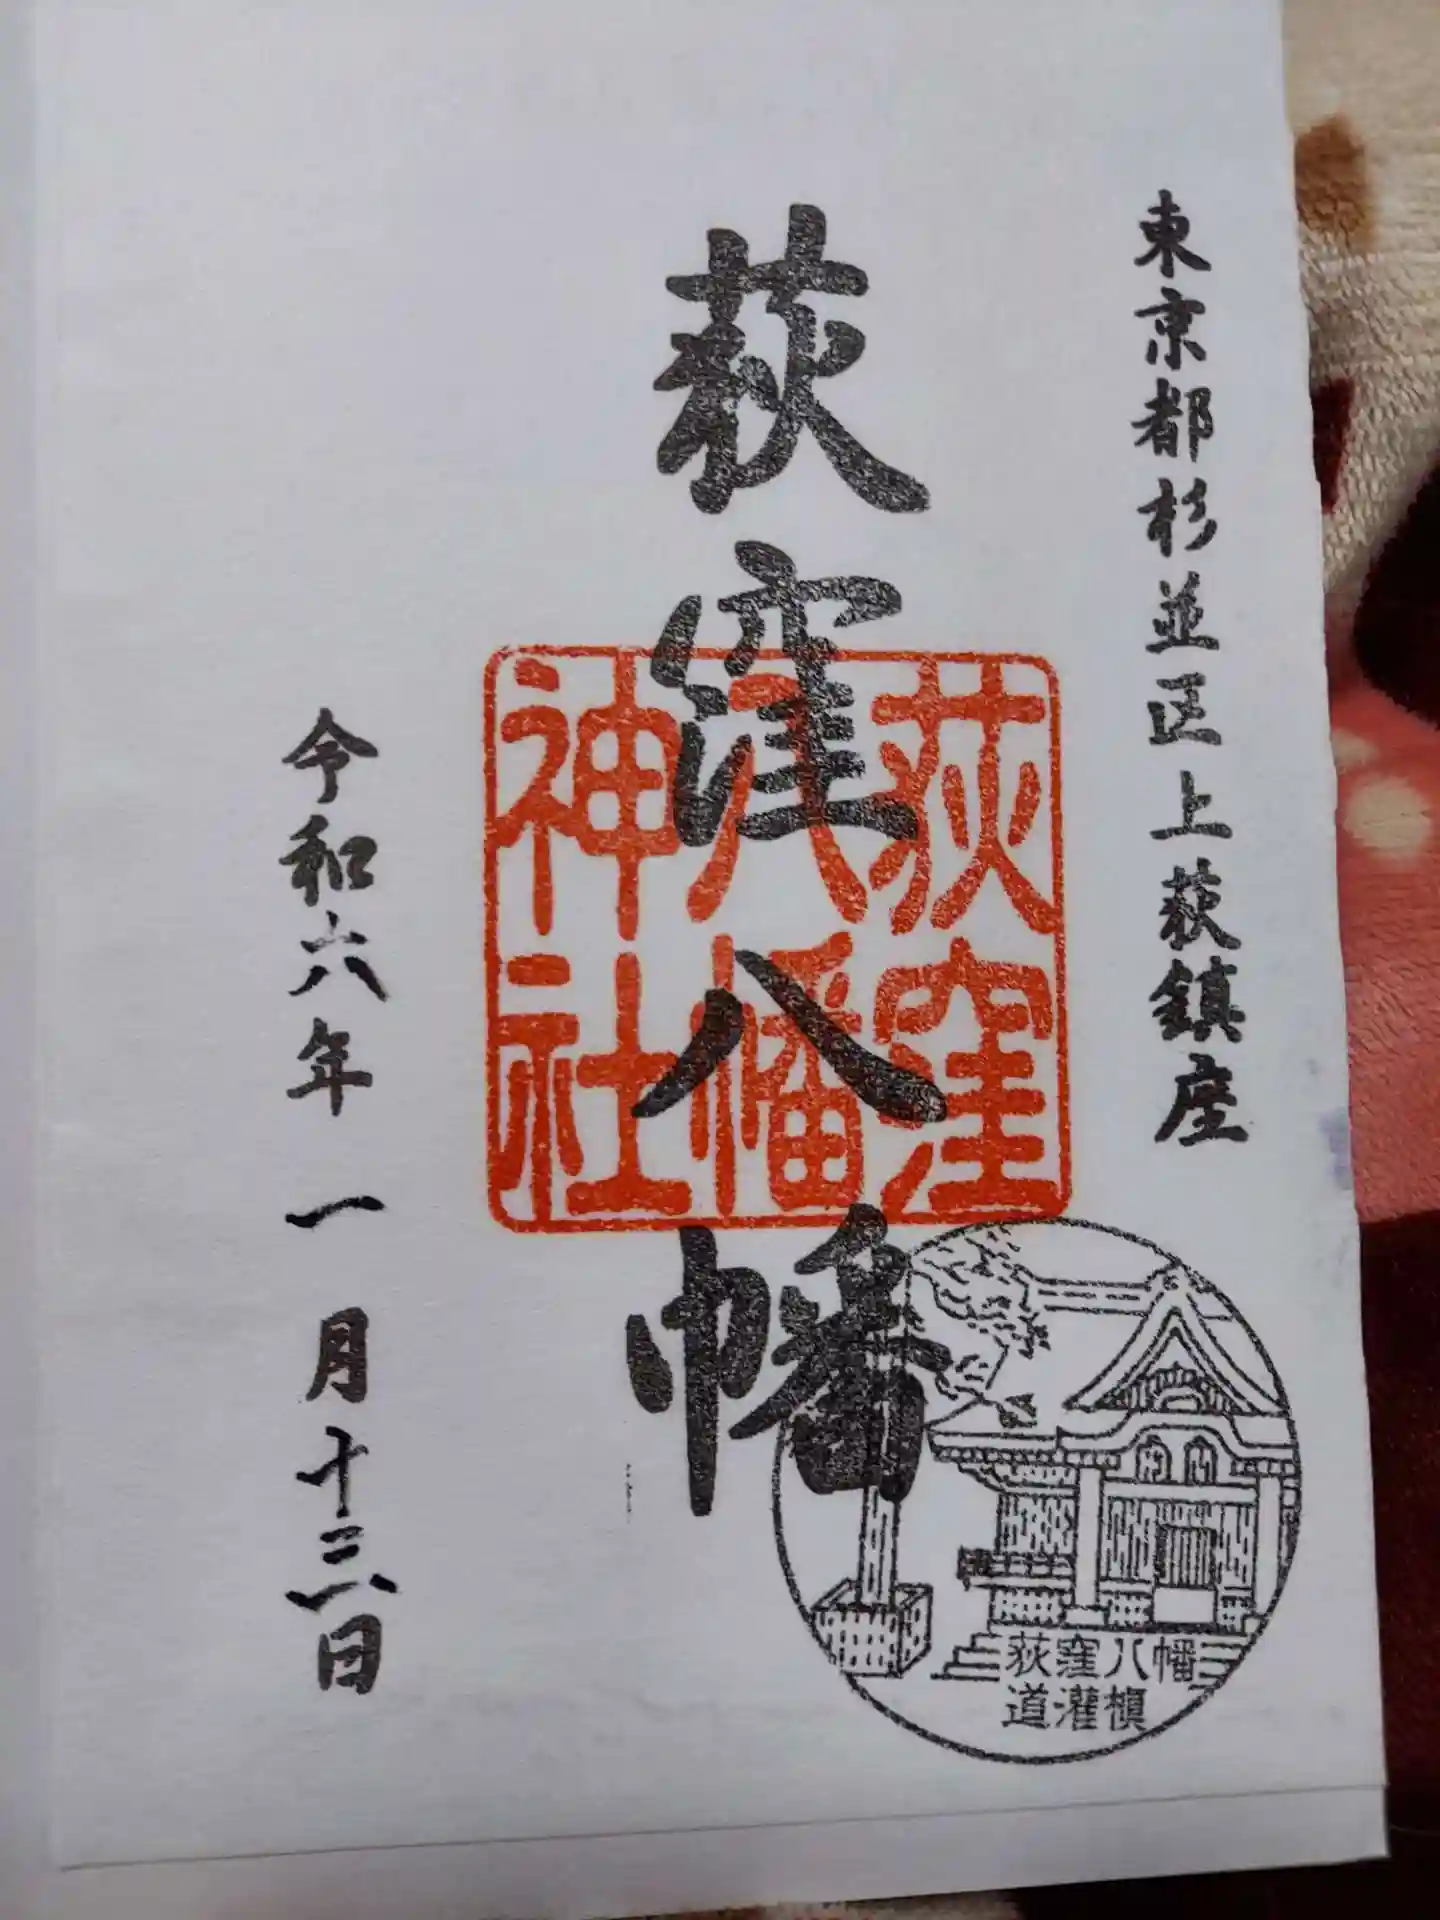 東京都杉並区上荻鎮座
荻窪八幡
荻窪
八幡
神社
荻窪八幡
道灌槇
令和六年一月十三日